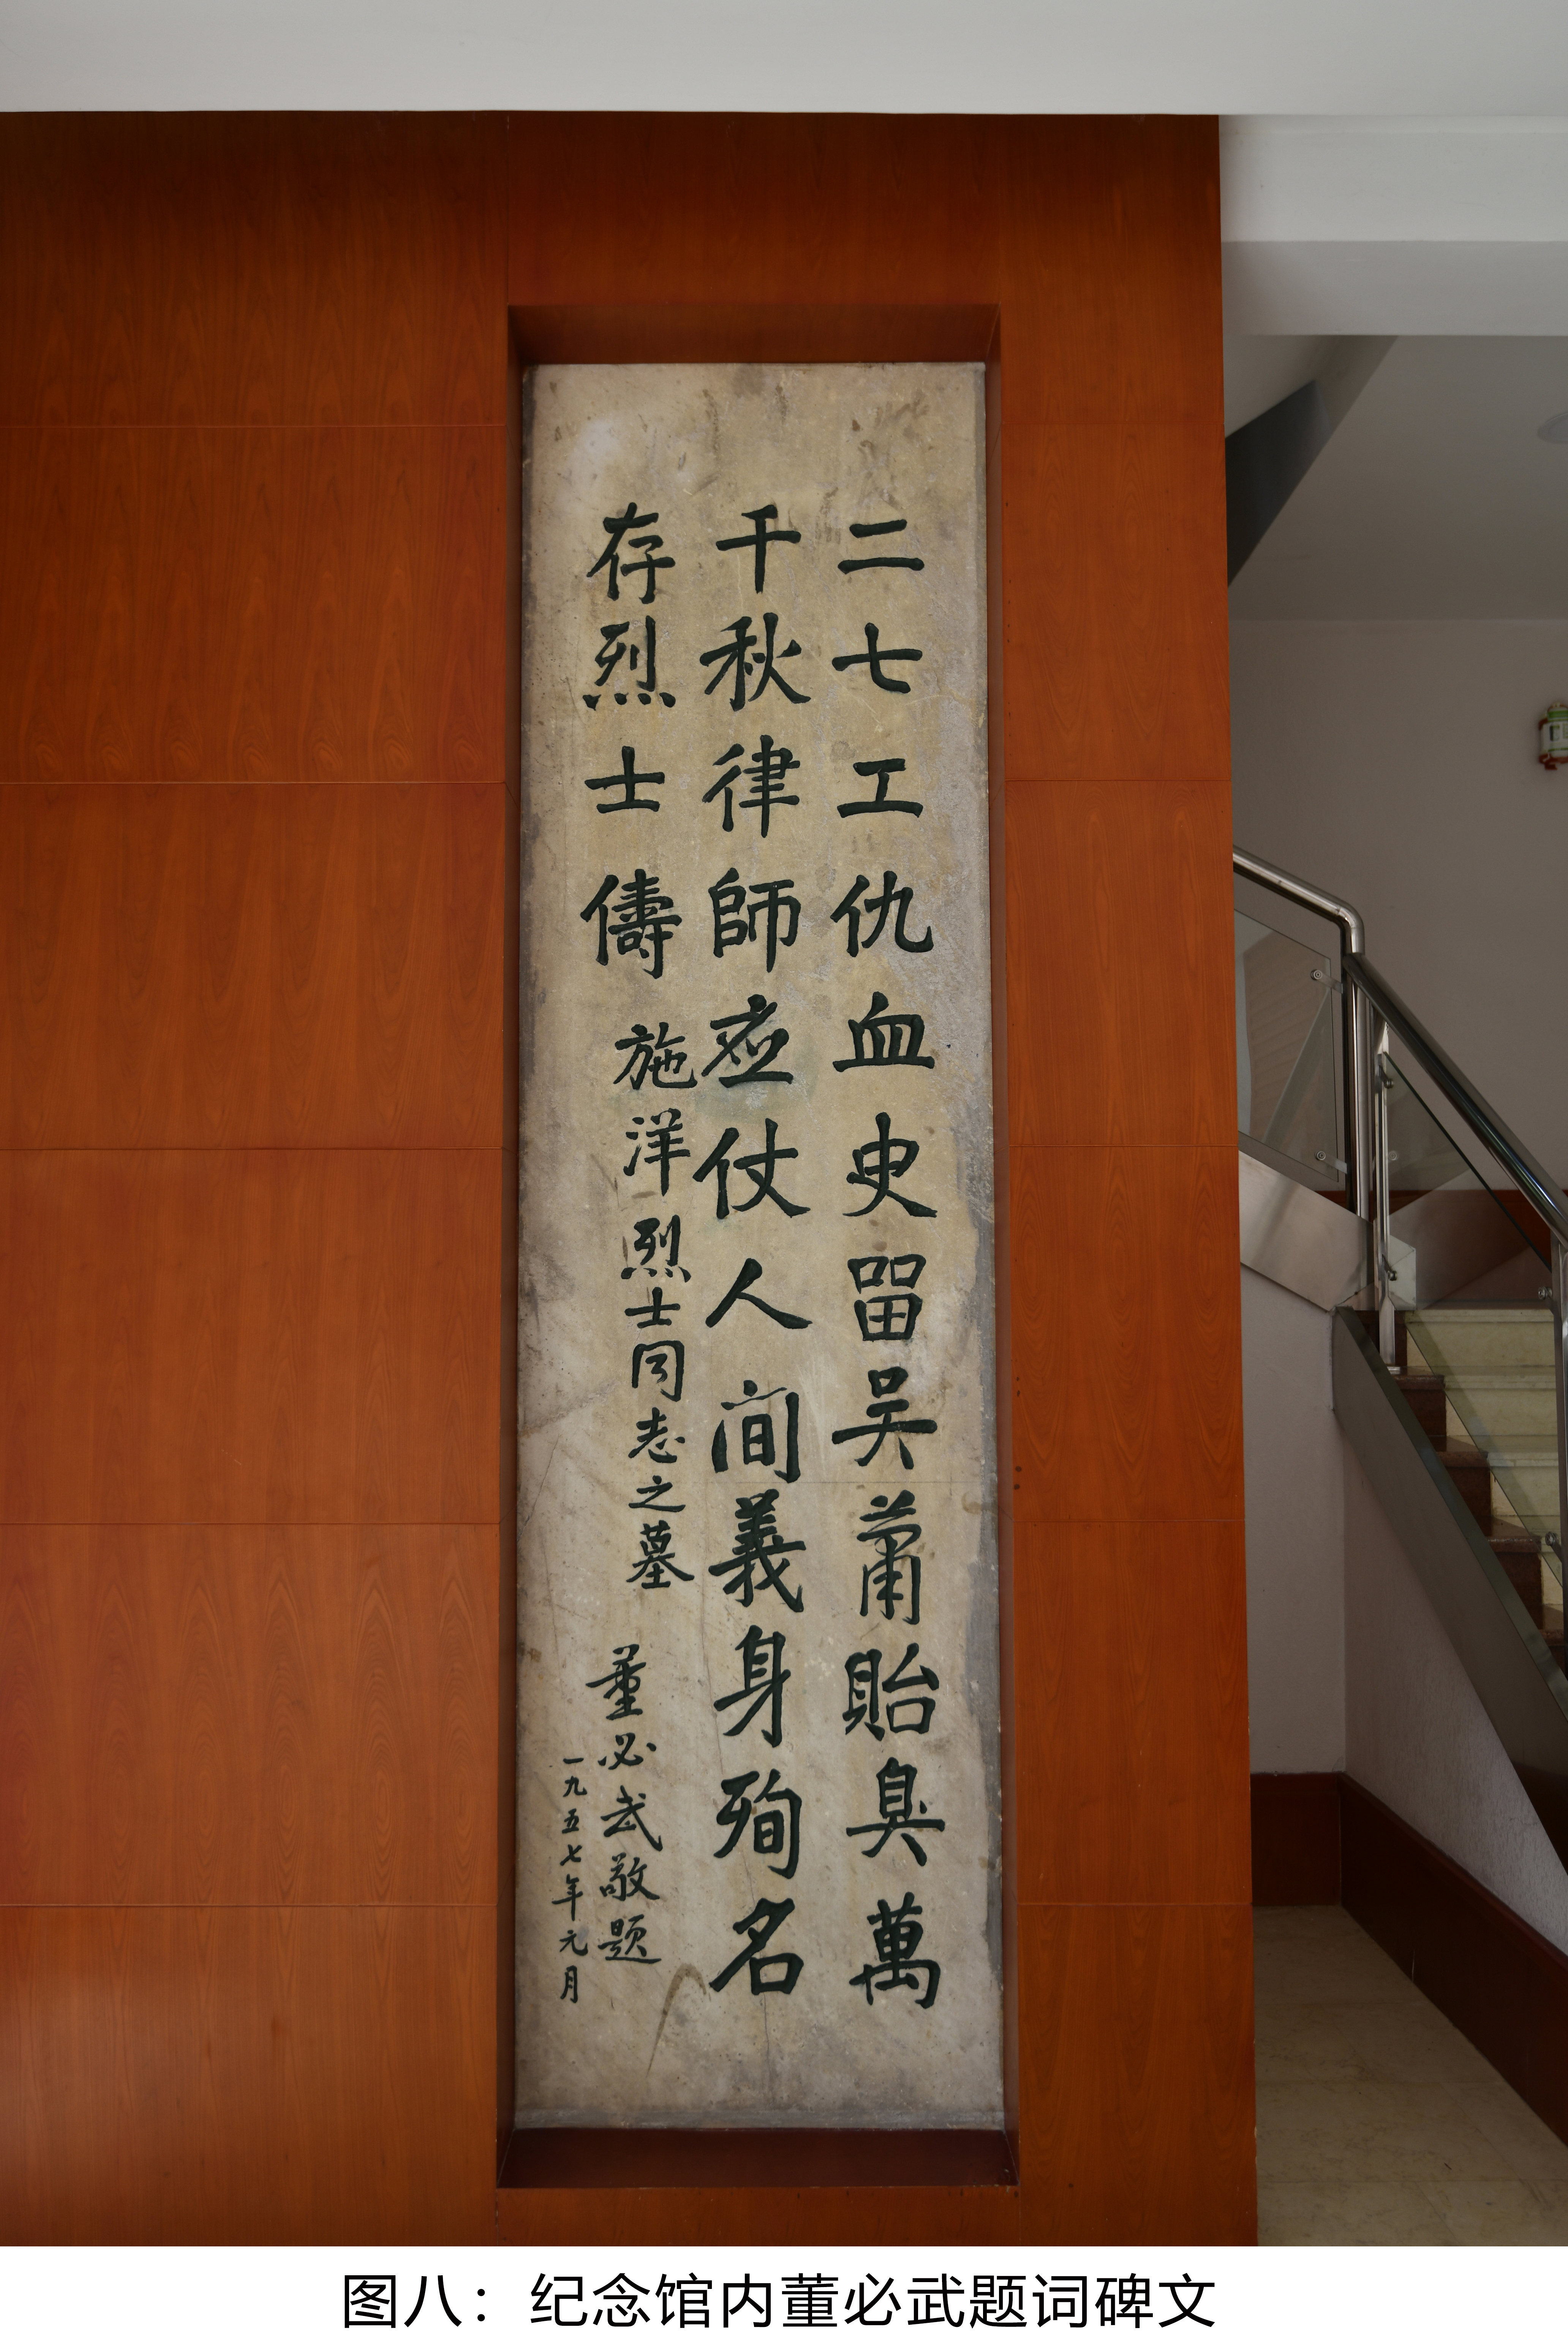 二七工仇血史留吴蕭貽臭萬
千秋律師应仗人间義身殉名
存烈士儔
施洋烈士同志之墓
董必武敬题
一九五七年元月
图八：纪念馆内董必武题词碑文